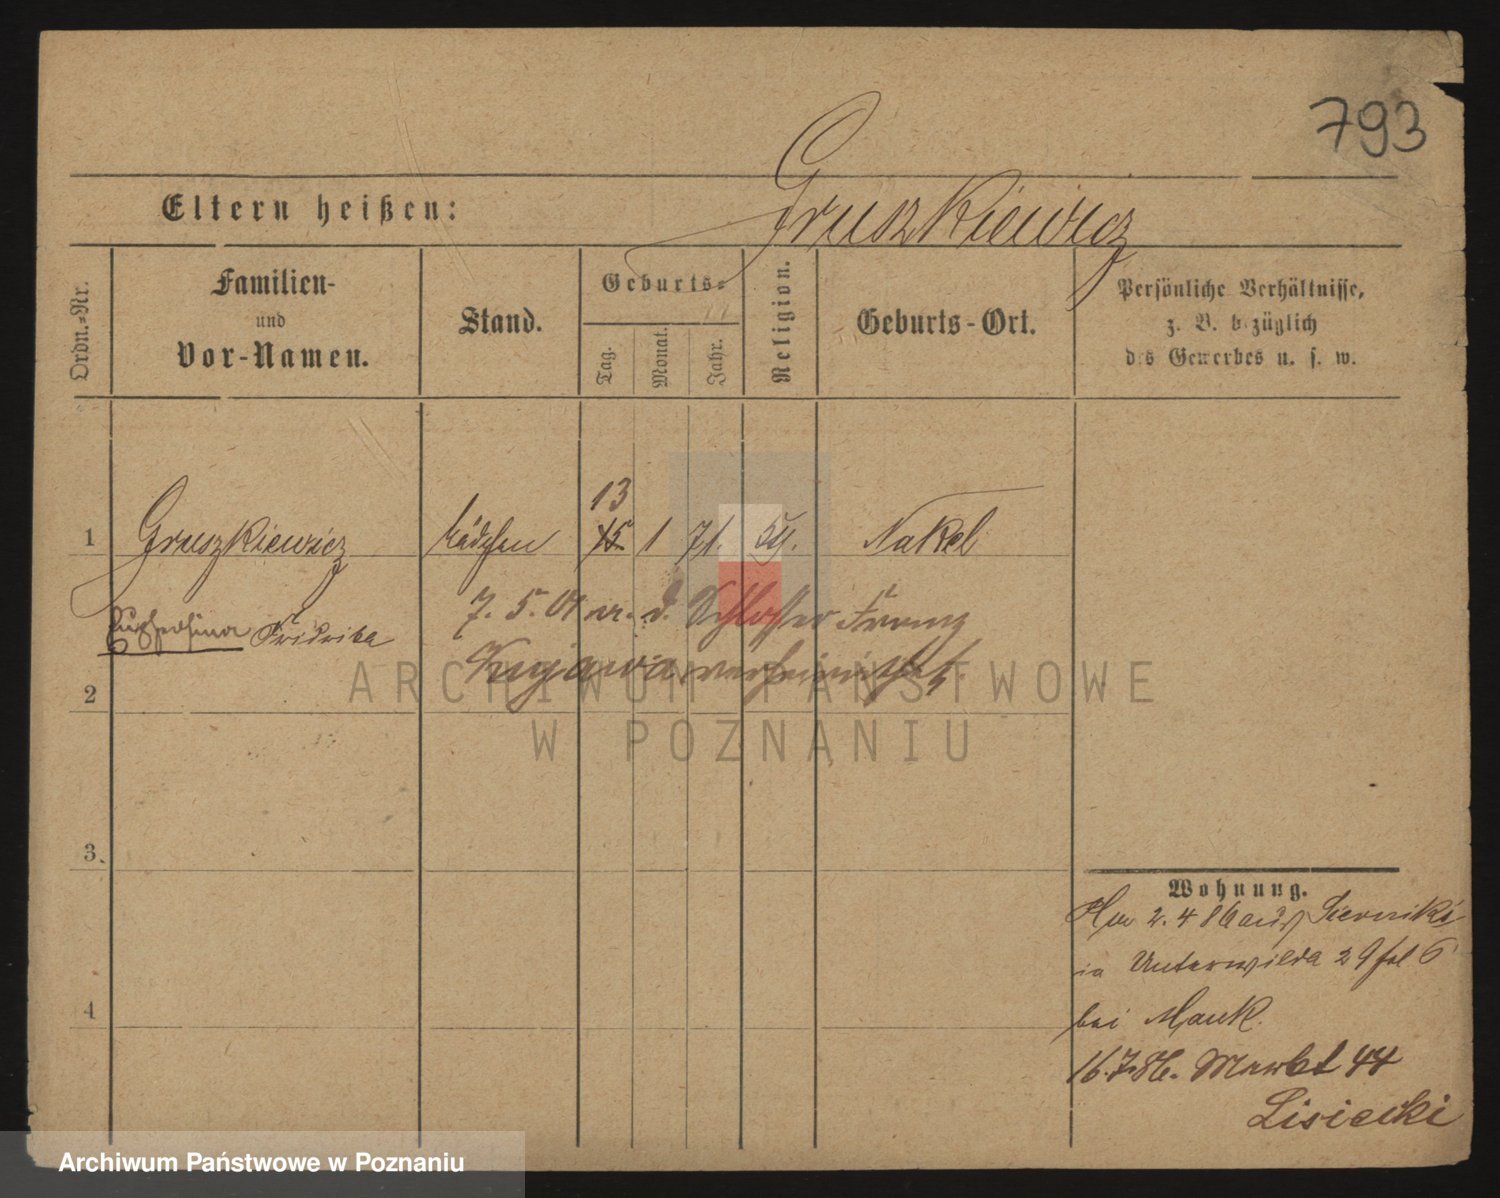 793
Eltern heißen:
Gruszkiewicz
Ordn.-Nr.
Familien-
und
Vor-Namen.
Stand.
Geburts-
Tag.
Monat.
Jahr.
Religion.
Geburts-Ort.
Persönliche Verhältnisse,
z. B. bezüglich
des Gewerbes u. s. w.
13
1 Gruszkiewicz Mädchen 15 1 71. Nakel
7. 5. 01 m. d. Schlosser Franz
Euphrosina Fridrika
Kujawa verheirathet.
2
3.
4
Wohnung.
2. 4 86 aus Siernik
in Unterwilda 29 fol 6
bei Mauk.
16.7.86. Markt 44
Lisiecki
ARCHIWUM PAŃSTWOWE
W POZNANIU
Archiwum Państwowe w Poznaniu